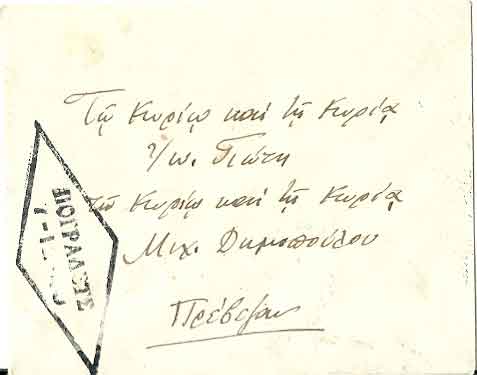 Τῷ Κυρίῳ καὶ τῇ Κυρίᾳ
Γιώτη
τῷ Κυρίῳ καὶ τῇ Κυρίᾳ
Μιχ. Δημοπούλου
Πρέβεζαν